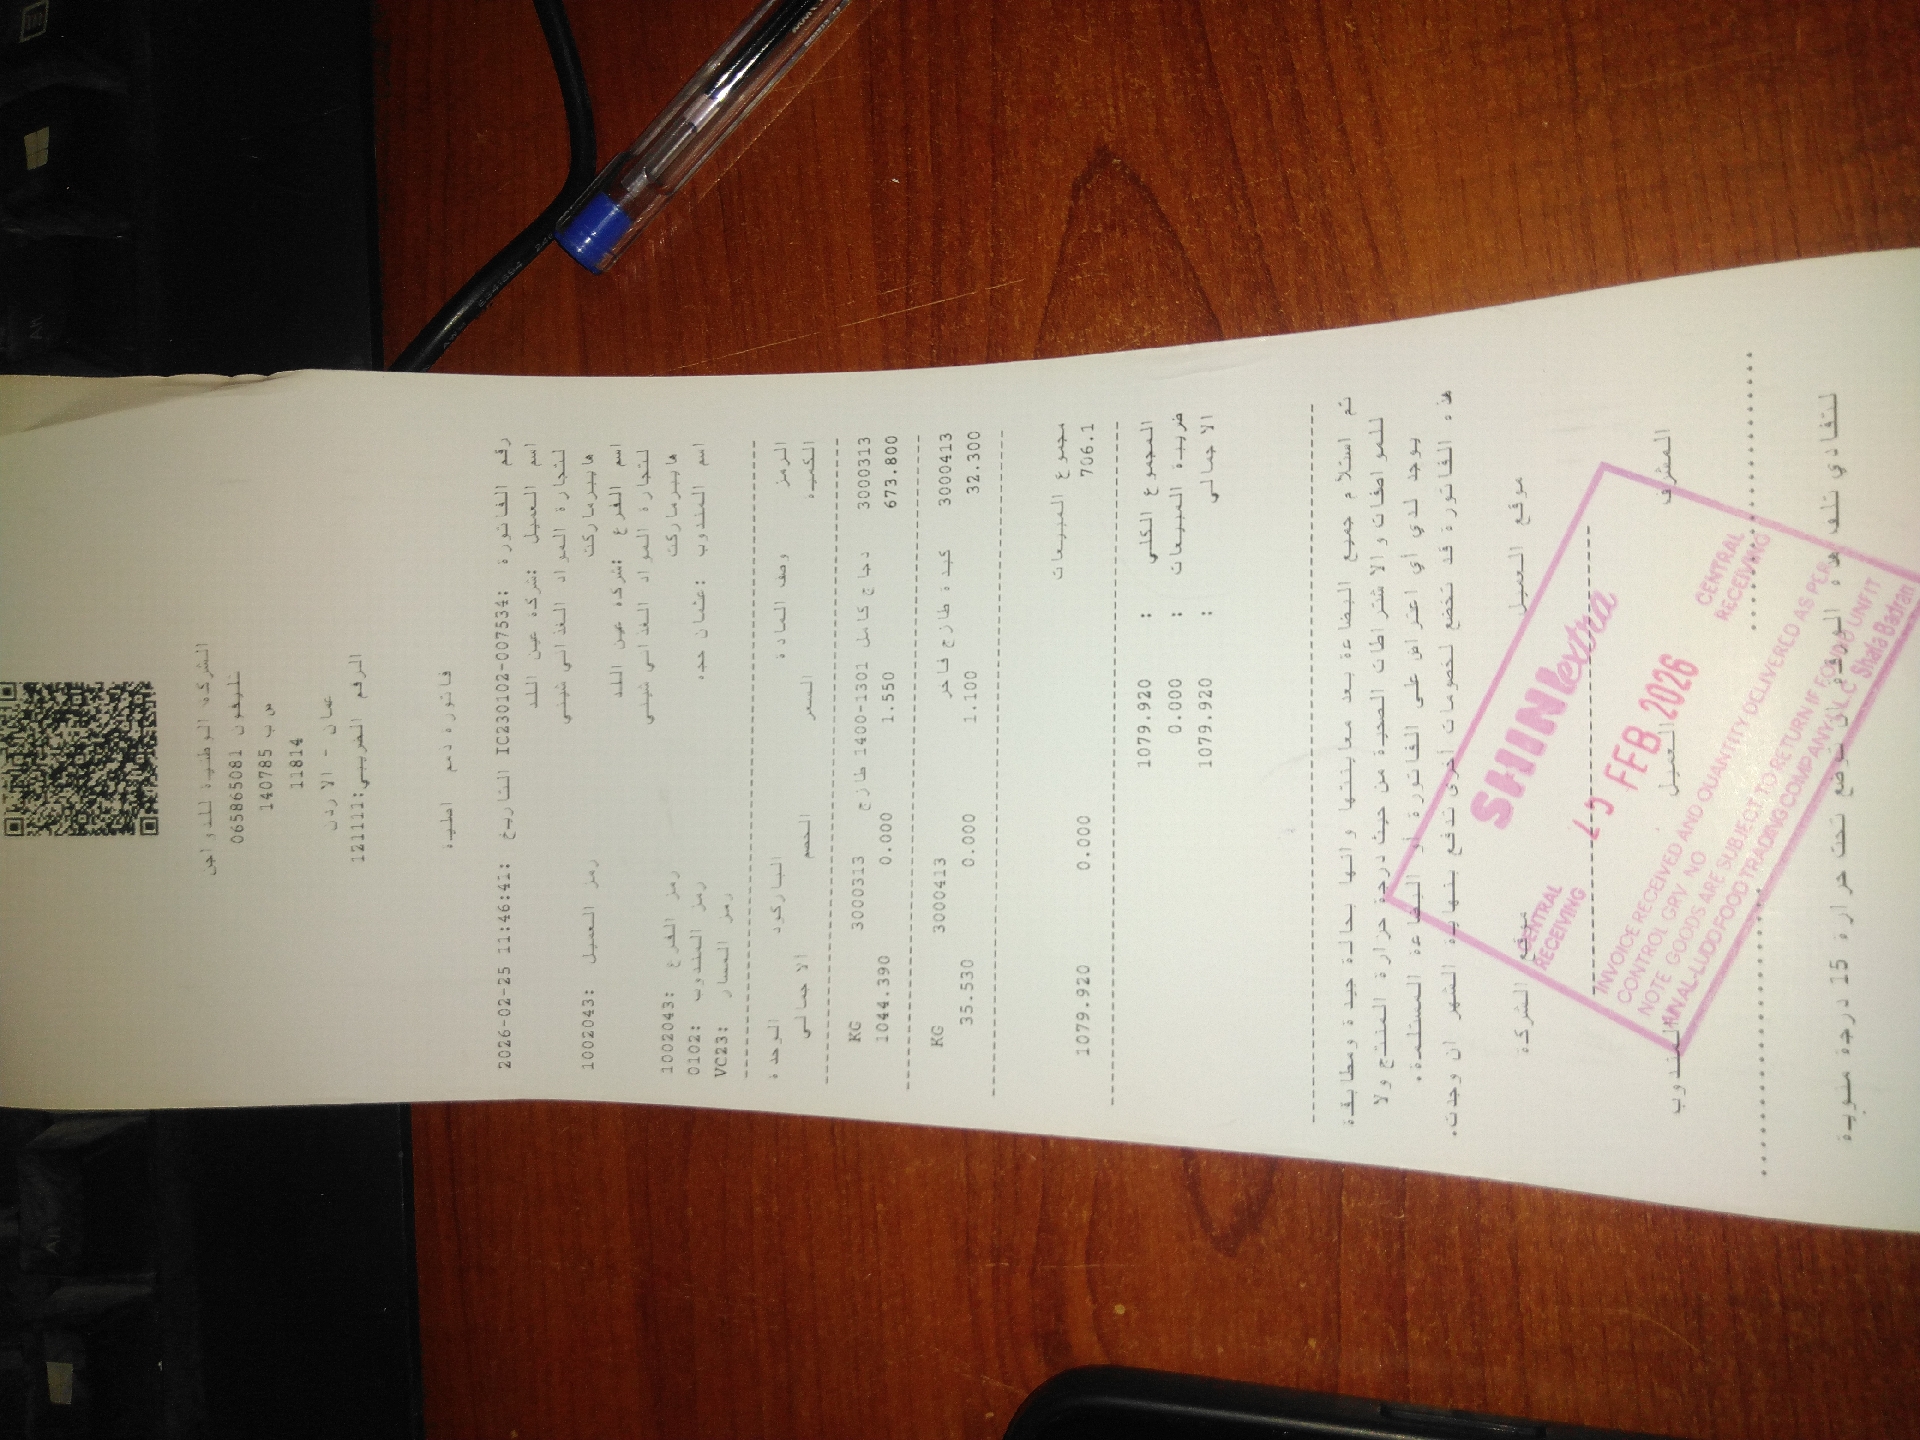 الشركة الوطنية للدواجن
تليفون 065865081
ص ب 140785
11814
عمان - الاردن
الرقم الضريبي:121111
فاتورة ذمم اصلية
رقم الفاتورة :IC230102-007534 التاريخ :2026-02-25 11:46:41
اسم العميل :شركة عين اللد
لتجارة المواد الغذائي شيني
هايبرماركت رمز العميل :1002043
اسم الفرع :شركة عين اللد
لتجارة المواد الغذائي شيني
هايبرماركت رمز الفرع :1002043
اسم المندوب :عثمان حده رمز المندوب :0102
رمز المسار :VC23
الرمز وصف المادة الباركود الوحدة
الكمية السعر الخصم الاجمالي
3000313 دجاج كامل 1301-1400 طازج 3000313 KG
673.800 1.550 0.000 1044.390
3000413 كبدة طازج فاخر 3000413 KG
32.300 1.100 0.000 35.530
مجموع المبيعات
706.1 0.000 1079.920
المجموع الكلي : 1079.920
ضريبة المبيعات : 0.000
الاجمالي : 1079.920
تم استلام جميع البضاعة بعد معاينتها وانها بحالة جيدة ومطابقة
للمواصفات والاشتراطات الصحية من حيث درجة حرارة المنتج ولا
يوجد لدي أي اعتراض على الفاتورة أو البضاعة المستلمة.
هذه الفاتورة قد تخضع لخصومات أخرى تدفع بنهاية الشهر ان وجدت.
موقع العميل موقع الشركة
المشرف العميل المندوب
لتفادي تلف هذه الورقة توضع تحت حرارة 15 درجة مئوية
SHINIextra
CENTRAL RECEIVING
FEB 2026
CENTRAL RECEIVING
INVOICE RECEIVED AND QUANTITY DELIVERED AS PER
CONTROL GRV NO
NOTE GOODS ARE SUBJECT TO RETURN IF FOUND UNFIT
FOOD TRADING COMPANY
Shafa Badran